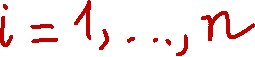 i = 1, ..., n